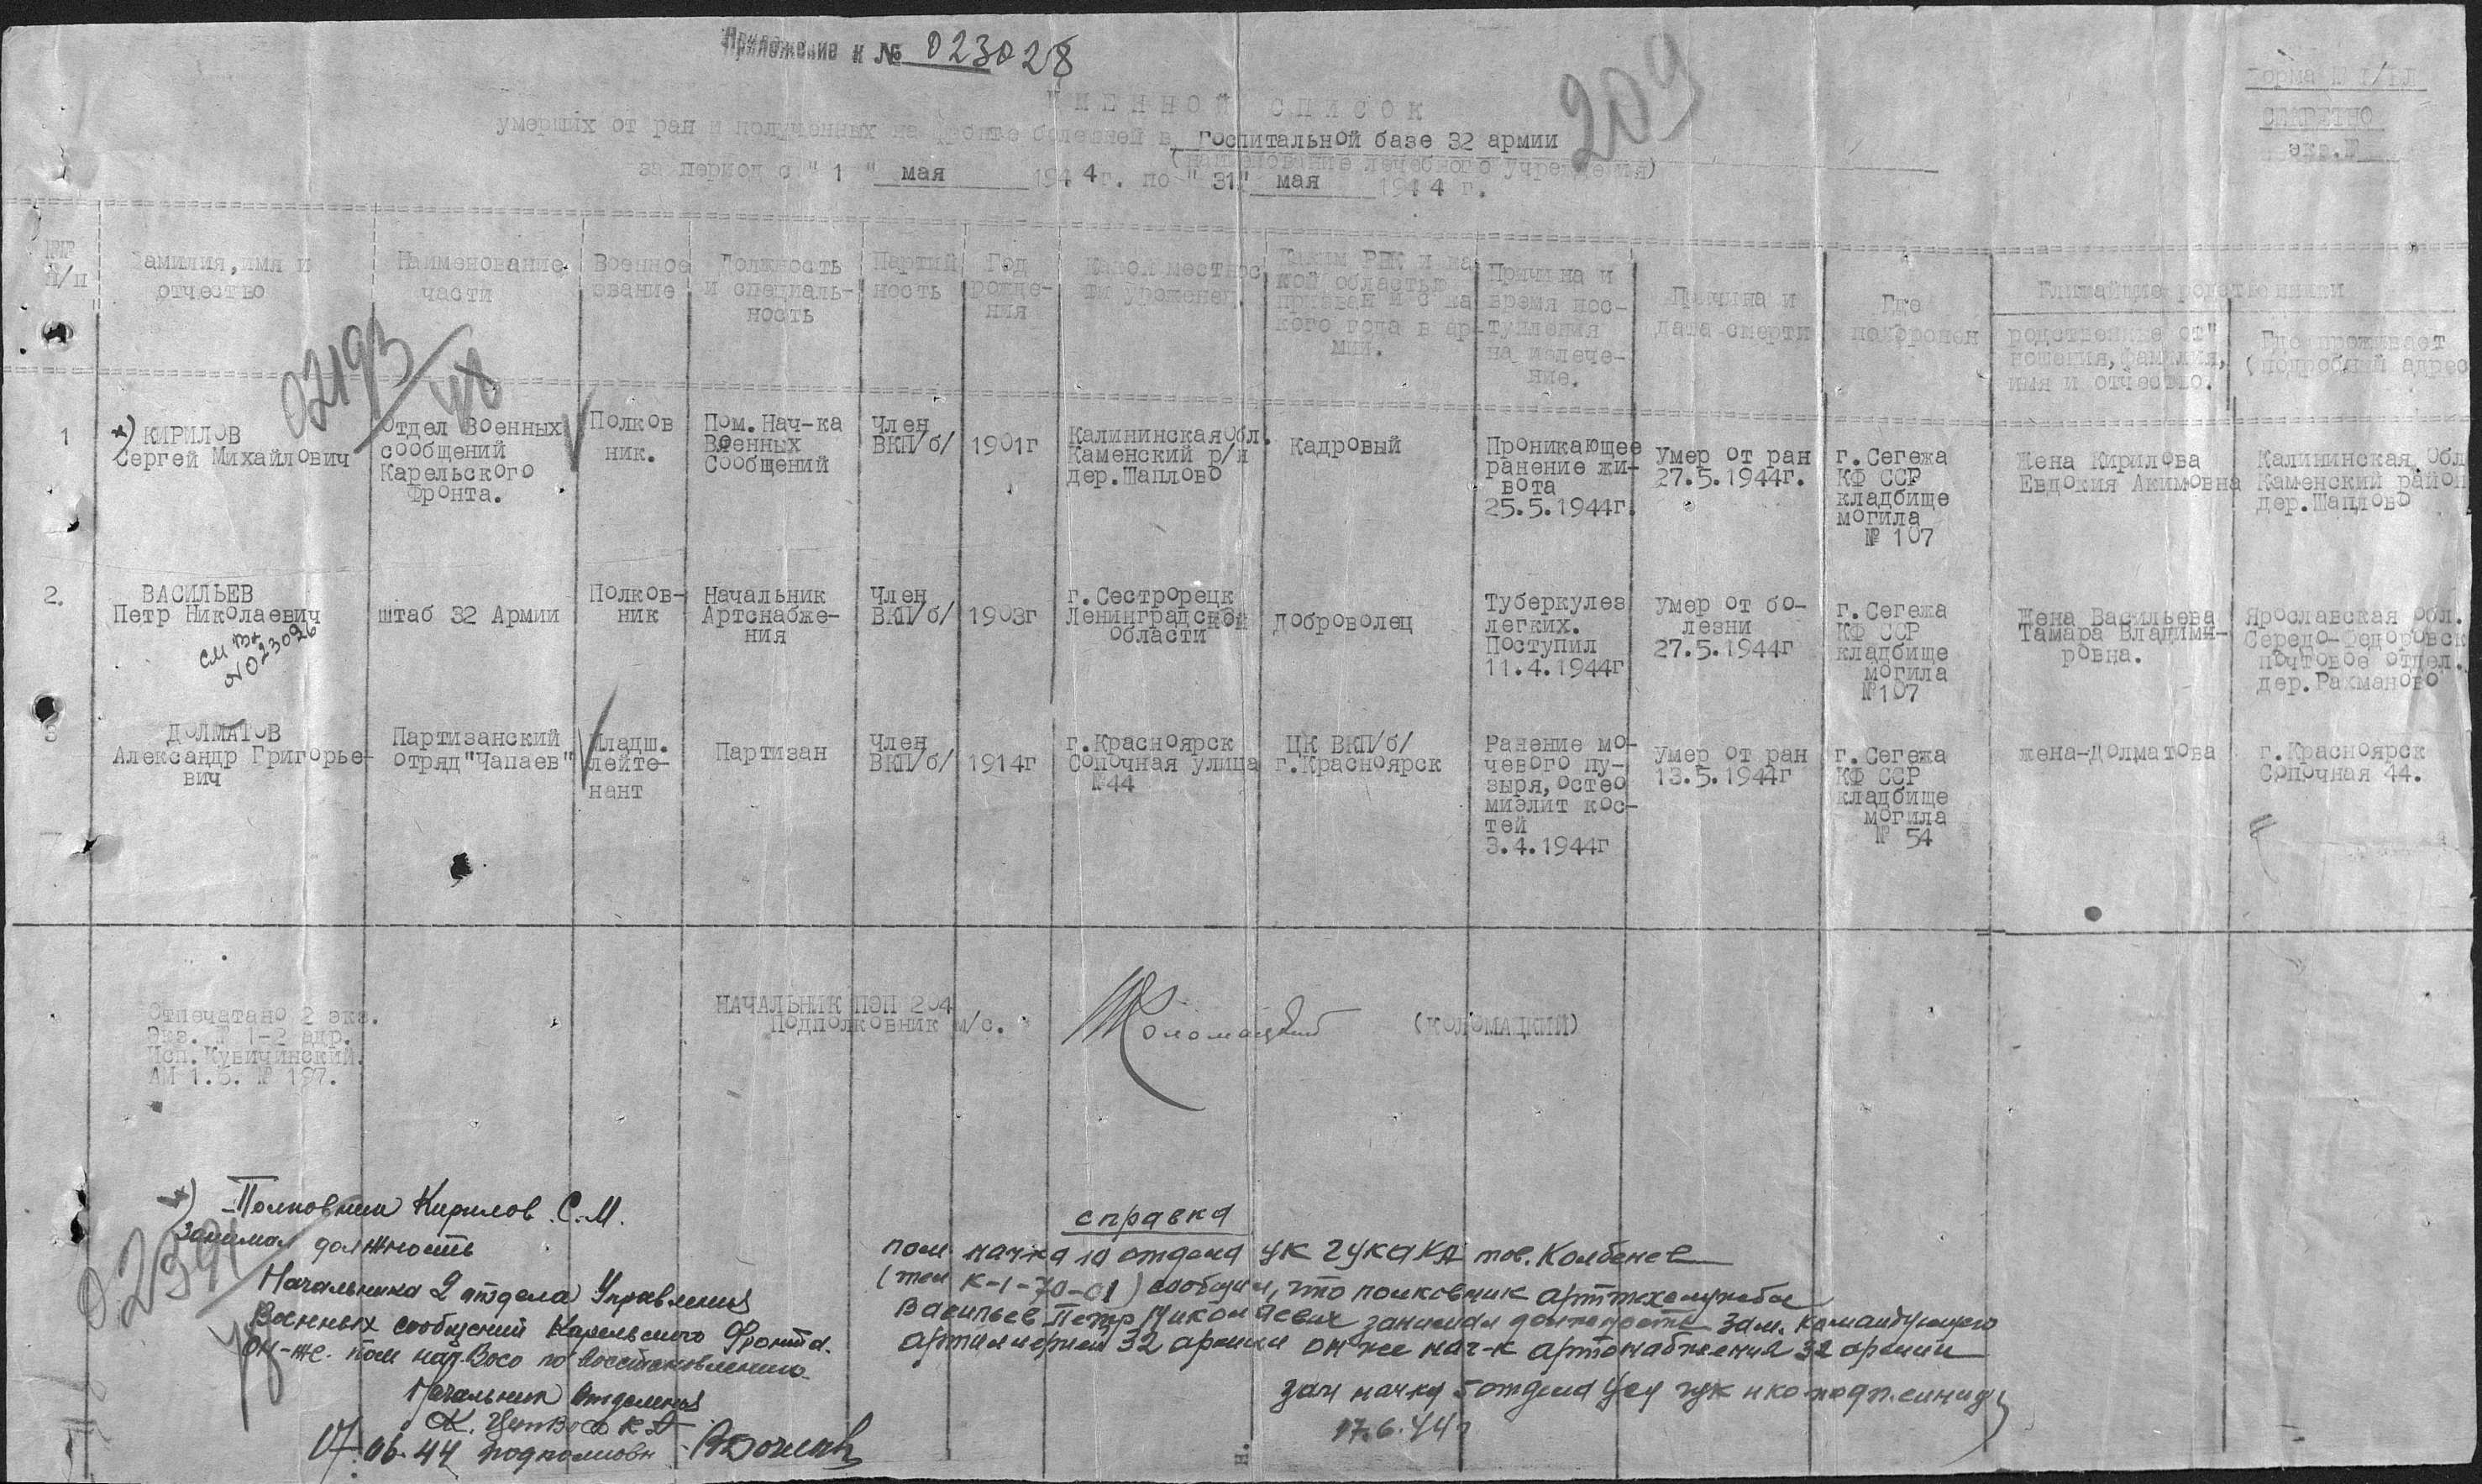 Приложение к № 023028
209
Форма № 1/БЛ
СЕКРЕТНО
экз.№
ИМЕННОЙ СПИСОК
умерших от ран и полученных на фронте болезней в госпитальной базе 32 армии
(наименование лечебного учреждения)
за период с "1" мая 1944г. по "31" мая 1944 г.
№№ п/п
Фамилия, имя и отчество
Наименование части
Военное звание
Должность и специаль-ность
Партий ность
Год рожде-ния
Какой местнос ти уроженец.
Каким РВК и ка кой областью призван и с ка кого года в ар мии.
Причина и время пос-тупления на излече-ние.
Причина и дата смерти
Где похоронен
Ближайшие родственники
родственные от" ношения, фамилия, имя и отчество.
Где проживает (подробный адрес
02193/48
1
х) КИРИЛОВ
Сергей Михайлович
Отдел Военных
сообщений
Карельского
Фронта.
Полков
ник.
Пом.Нач-ка
Военных
Сообщений
Член
ВКП/б/
1901г
Калининская обл.
Каменский р/н
дер.Шаплово
Кадровый
Проникающее
ранение жи-
вота
25.5.1944г.
Умер от ран
27.5.1944г.
г.Сегежа
КФ ССР
кладбище
могила
№ 107
Жена Кирилова
Евдокия Акимовна
Калининская Обл
Каменский район
дер.Шаплово
2.
ВАСИЛЬЕВ
Петр Николаевич
№023026
штаб 32 Армии
Полков-
ник
Начальник
Артснабже-
ния
Член
ВКП/б/
1903г
г.Сестрорецк
Ленинградской
области
Доброволец
Туберкулез
легких.
Поступил
11.4.1944г
Умер от бо-
лезни
27.5.1944г
г.Сегежа
КФ ССР
кладбище
могила
№107
Жена Васильева
Тамара Владими-
ровна.
Ярославская обл.
Середо-Федоровск
почтовое отдел.
дер.Рахманово
3
ДОЛМАТОВ
Александр Григорье-
вич
Партизанский
отряд "Чапаев"
Младш.
лейте-
нант
Партизан
Член
ВКП/б/
1914г
г.Красноярск
Сопочная улица
№44
ЦК ВКП/б/
г.Красноярск
Ранение мо-
чевого пу-
зыря, остео
миэлит кос-
тей
3.4.1944г
Умер от ран
13.5.1944г
г.Сегежа
КФ ССР
кладбище
могила
№ 54
жена-Долматова
г.Красноярск
Сопочная 44.
Отпечатано 2 экз.
Экз. № 1-2 адр.
Исп.Кувичинский.
АМ 1.6. № 197.
НАЧАЛЬНИК ПЭП 204
Подполковник м/с.
Коломацкий
(КОЛОМАЦКИЙ)
х) Полковник Кирилов С.М.
Занимал должность
Начальника 2 отдела Управления
Военных сообщений Карельского Фронта.
Он-же. пом нач. Восо по восстановлению.
Начальник отделения
17.06.44 подполковн
справка
пом. начка 10 отдела УК ГУК АКА тов. Колбенев
(тел К-1-70-01) сообщил, что полковник арттехслужбы
Васильев Петр Николаевич занимал должность Зам. Командующего
артиллерией 32 армии он же нач-к артснабжения 32 армии
17.6.44г